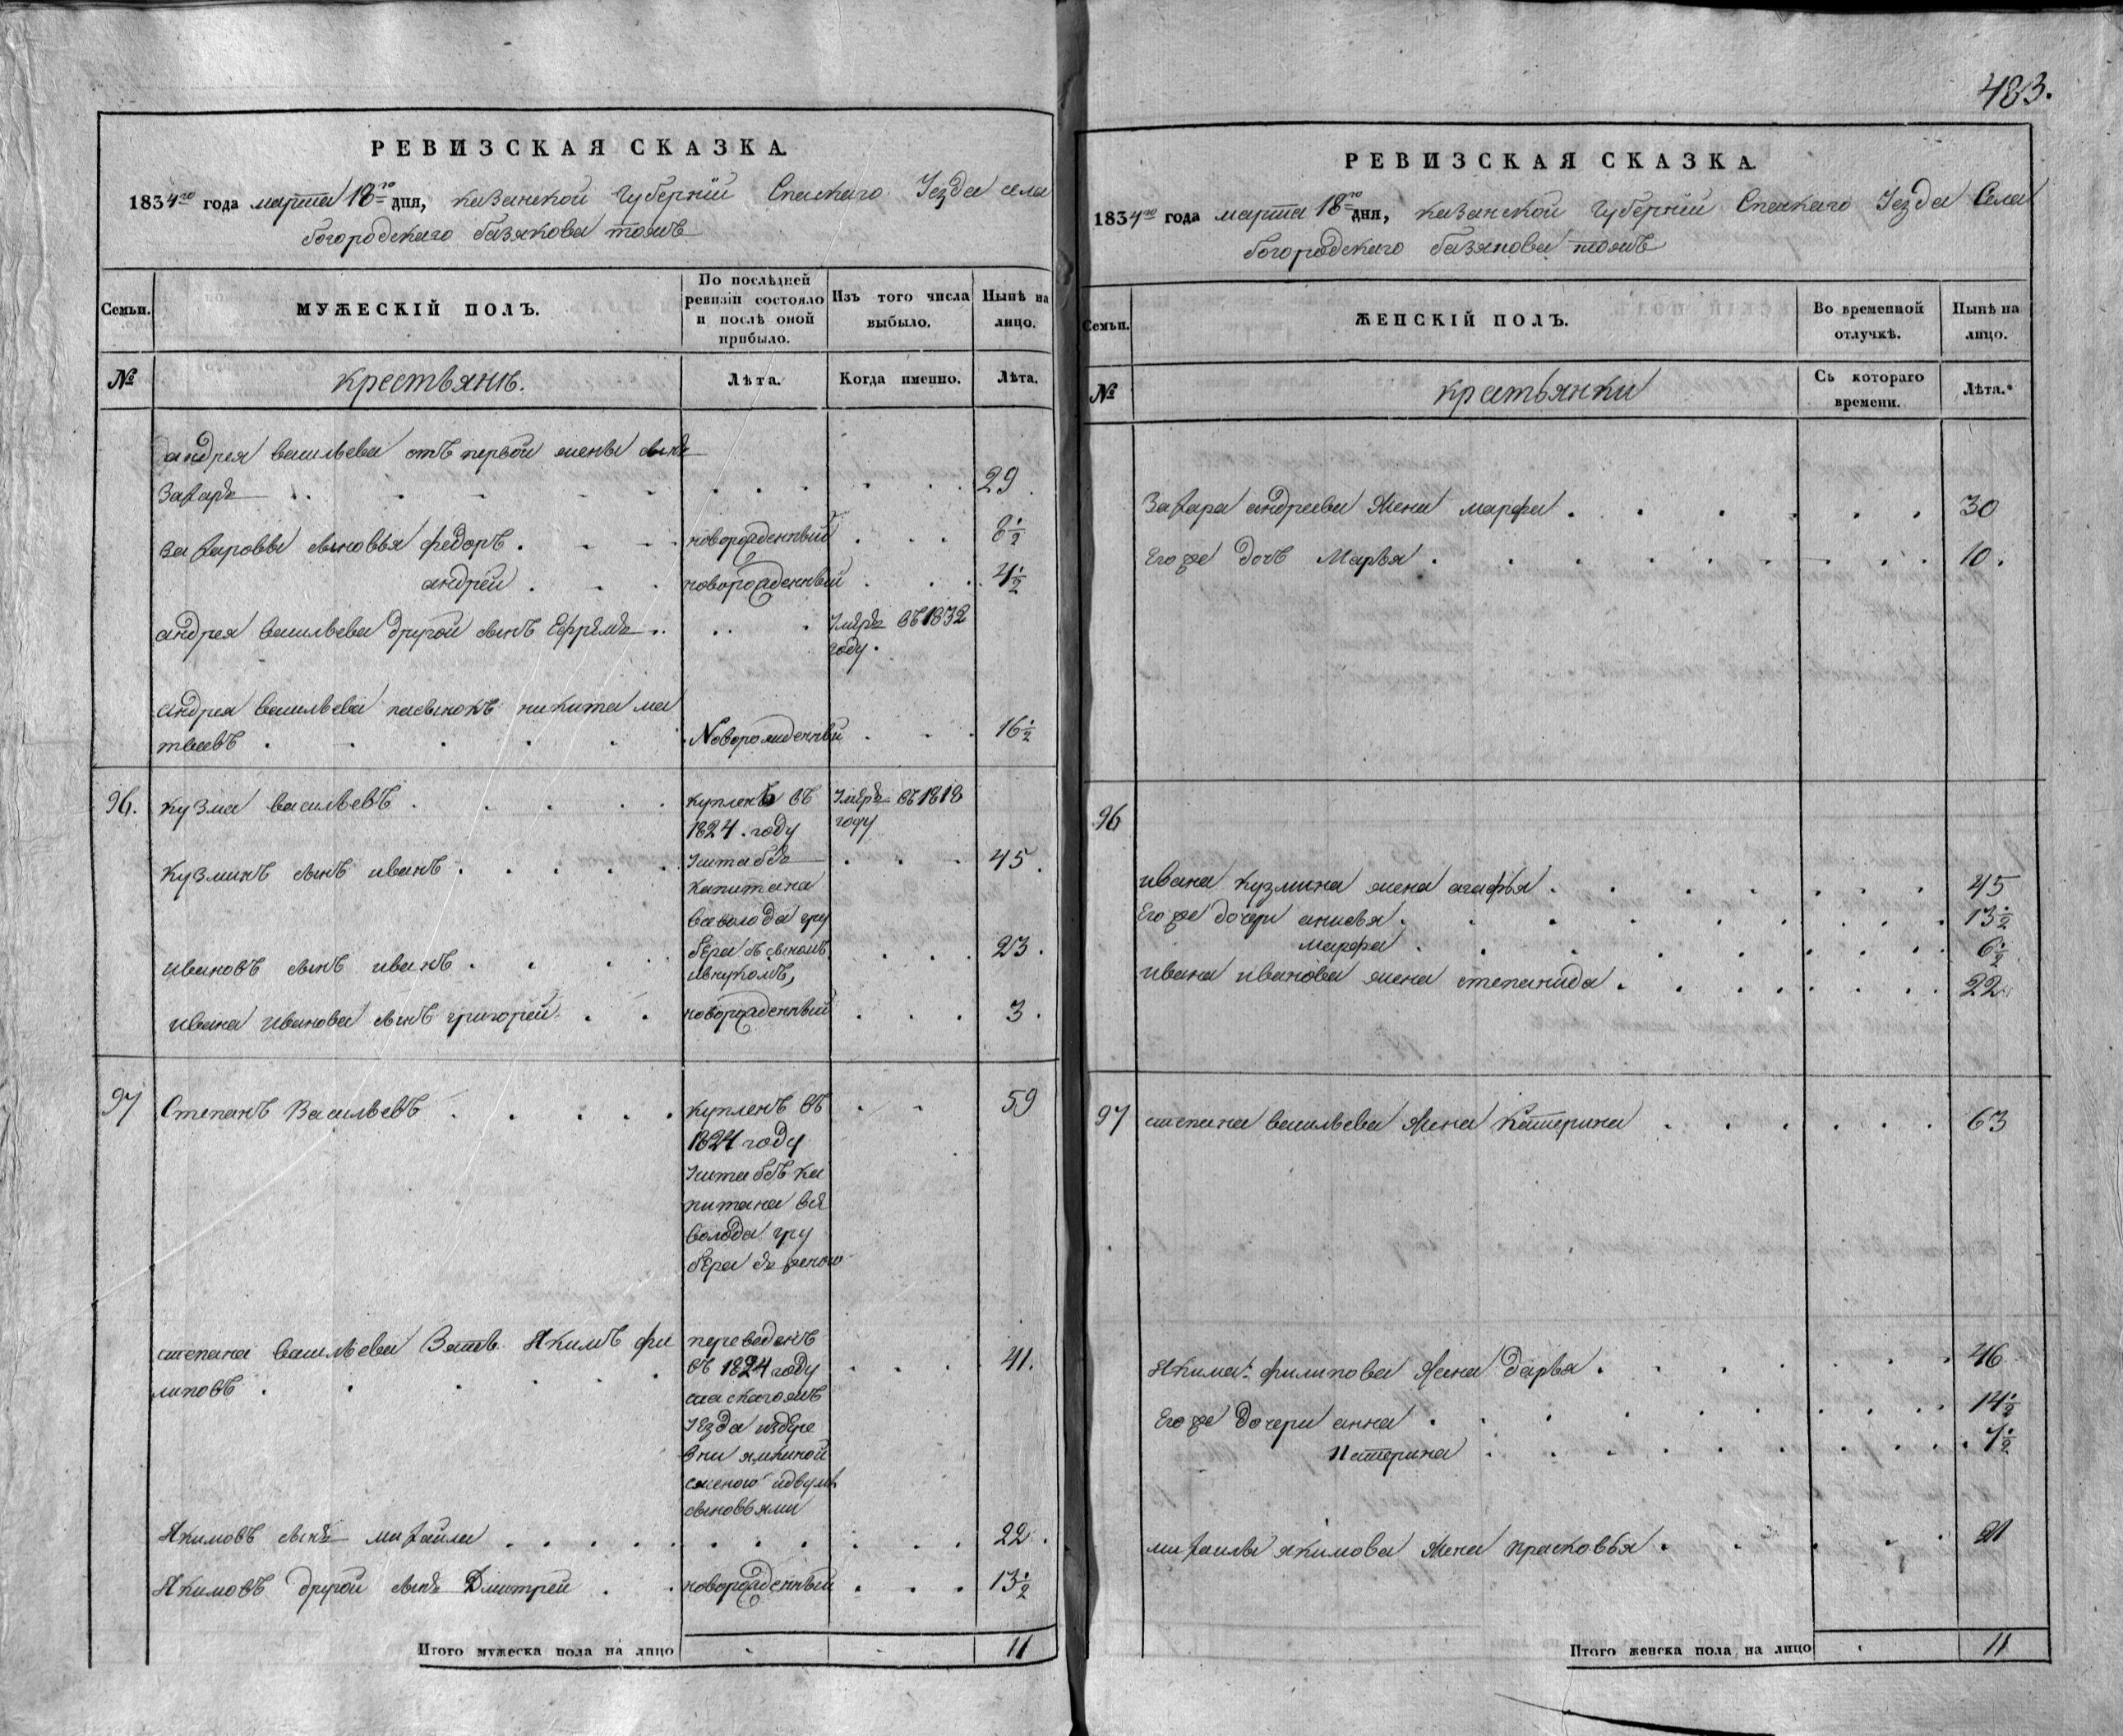 483.
РЕВИЗСКАЯ СКАЗКА.
1834го года марта 18го дня, казанской губерніи Спаскаго Уезда села
богородскаго базякова тожъ
Семьи.
МУЖЕСКІЙ ПОЛЪ.
По послѣдней
ревизіи состояло
и послѣ оной
прибыло.
Изъ того числа
выбыло.
Нынѣ на
лицо.
№
крестьянъ.
Лѣта.
Когда именно.
Лѣта.
андрея васильева отъ первой жены сынъ
Захаръ 29
захаровы сыновья федоръ новорожденный 8½
андрей новорожденный 4½
андрея васильева другой сынъ Ефремъ Умеръ въ 1832
году.
андрея васильева пасынокъ никита ма
твеевъ Новорожденный 16½
96. кузма васильевъ купленъ въ Умеръ въ 1818
1824. году году
кузминъ сынъ иванъ Уштабсъ 45.
капитана
всеволода гру
бера съ сыномъ
ивнукомъ,
ивановъ сынъ иванъ 23.
ивана иванова сынъ григорей новорожденный 3.
97 Степанъ Васильевъ купленъ въ 59
1824 году
Уштабсъ ка
питана все
волода гру
бера съ женою
степана васильева Зять Якимъ фи
липовъ 41.
переведенъ
въ 1824 году
спаскагожъ
Уезда издере
вни
сженою идвумя
сыновьями
Якимовъ сынъ михайла 22.
Якимовъ другой сынъ Дмитрей новорожденный 13½
Итого мужеска пола на лицо 11
РЕВИЗСКАЯ СКАЗКА.
1834го года марта 18го дня, казанской губерніи Спаскаго Уезда Села
богородскаго базякова тожъ
Семьи.
ЖЕНСКІЙ ПОЛЪ.
Во временной
отлучкѣ.
Нынѣ на
лицо.
№
крестьянки
Съ котораго
времени.
Лѣта.
Захара андреева Жена марфа 30
Егоже дочь Марья 10.
96
ивана кузмина жена агафья 45
Егоже дочери анисья 13½
марфа 6½
ивана иванова жена степанида 22
97 степана васильева Жена Катерина 63
Якима филипова Жена дарья 46
Егоже дочери анна 14½
Катерина 7½
михаилы якимова Жена прасковья 21
Итого женска пола на лицо 11